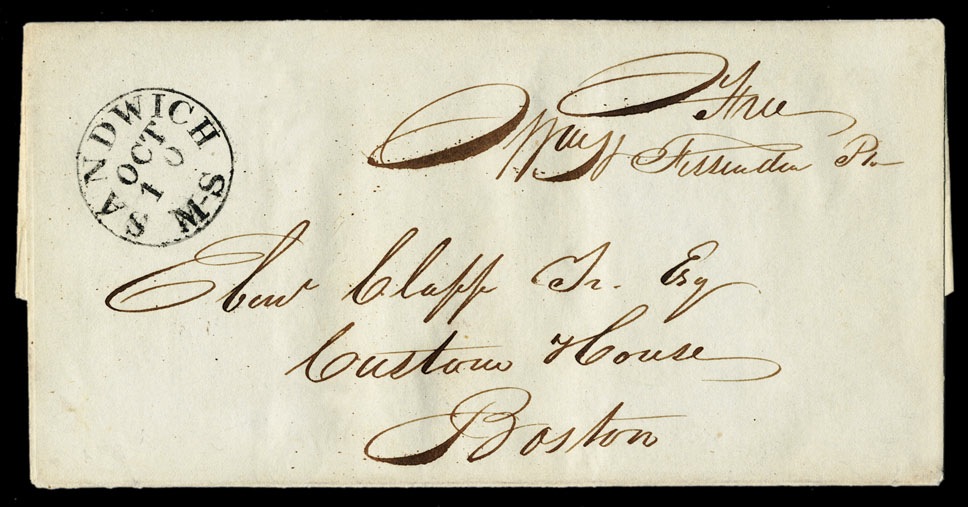 SANDWICH M-S
OCT
10
Free
Fessenden Pm
Eben Clapp Jr. Esq
Custom House
Boston